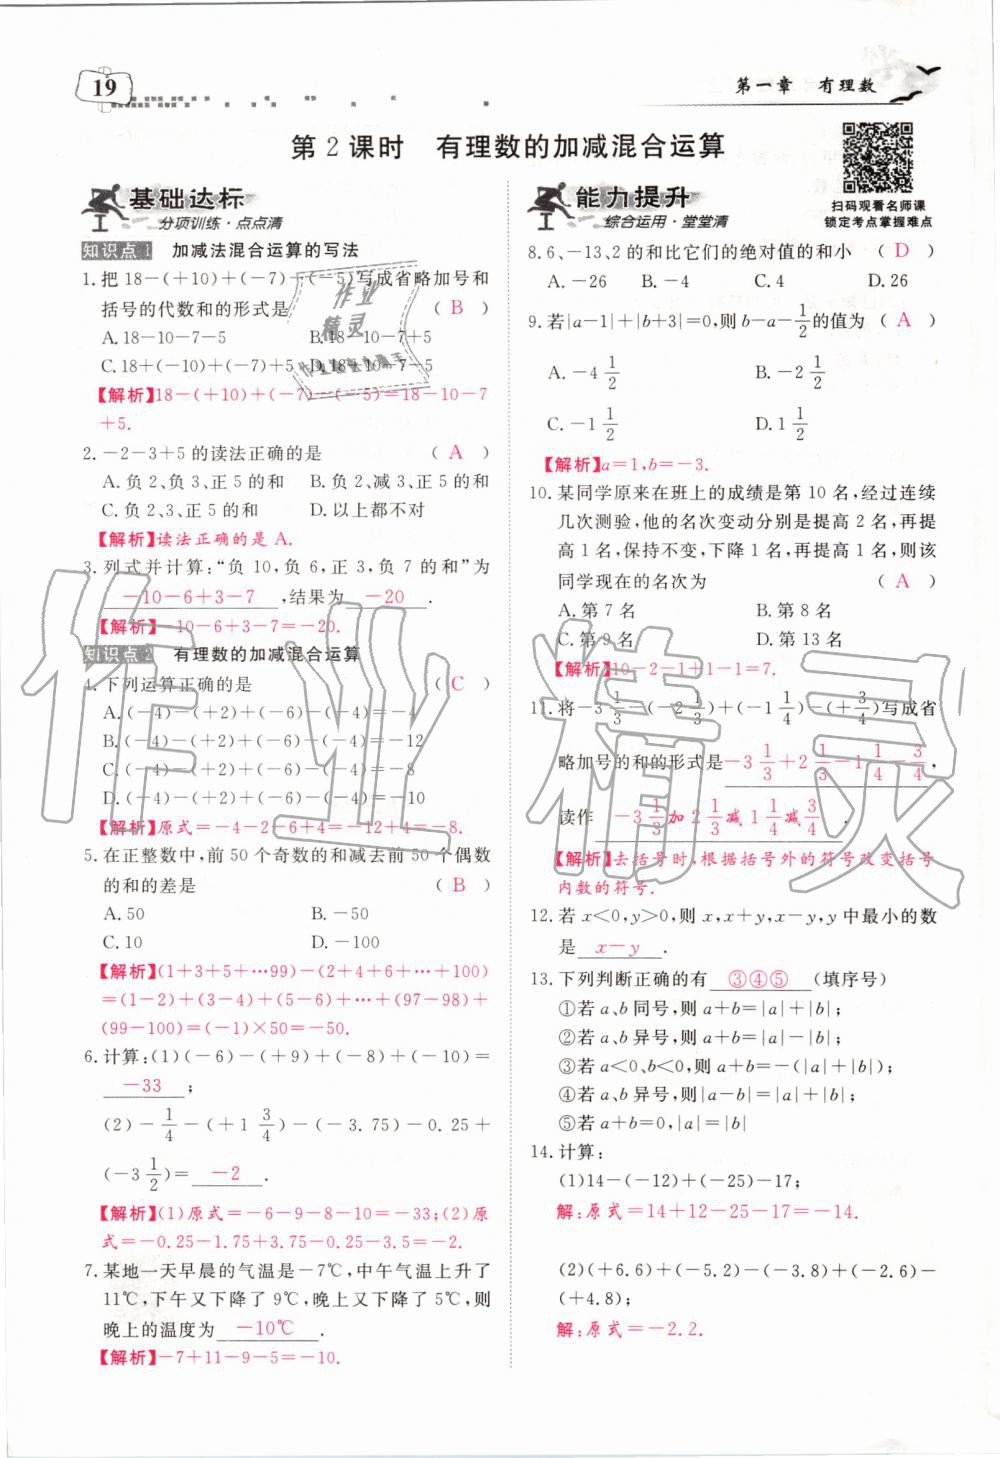 19
第一章 有理数
第2课时 有理数的加减混合运算
基础达标
分项训练·点点清
知识点1 加减法混合运算的写法
1.把18-(+10)+(-7)-(-5)写成省略加号和
括号的代数和的形式是 ( B )
A.18-10-7-5 B.18-10-7+5
C.18+(-10)+(-7)+5 D.18+10-7-5
【解析】18-(+10)+(-7)-(-5)=18-10-7
+5.
2.-2-3+5的读法正确的是 ( A )
A.负2、负3、正5的和 B.负2、减3、正5的和
C.负2、3、正5的和 D.以上都不对
【解析】读法正确的是A.
3.列式并计算:“负10,负6,正3,负7的和”为
-10-6+3-7,结果为 -20 .
【解析】-10-6+3-7=-20.
知识点2 有理数的加减混合运算
4.下列运算正确的是 ( C )
A.(-4)-(+2)+(-6)-(-4)=-4
B.(-4)-(+2)+(-6)-(-4)=-12
C.(-4)-(+2)+(-6)-(-4)=-8
D.(-4)-(+2)+(-6)-(-4)=-10
【解析】原式=-4-2-6+4=-12+4=-8.
5.在正整数中,前50个奇数的和减去前50个偶数
的和的差是 ( B )
A.50 B.-50
C.10 D.-100
【解析】(1+3+5+…99)-(2+4+6+…+100)
=(1-2)+(3-4)+(5-6)+…+(97-98)+
(99-100)=(-1)×50=-50.
6.计算:(1)(-6)-(+9)+(-8)+(-10)=
-33 ;
(2)-1/4-(+1 3/4)-(-3.75)-0.25+
(-3 1/2)= -2 .
【解析】(1)原式=-6-9-8-10=-33;(2)原
式=-0.25-1.75+3.75-0.25-3.5=-2.
7.某地一天早晨的气温是-7℃,中午气温上升了
11℃,下午又下降了9℃,晚上又下降了5℃,则
晚上的温度为 -10℃ .
【解析】-7+11-9-5=-10.
能力提升
综合运用·堂堂清
扫码观看名师课
锁定考点掌握难点
8.6、-13、2的和比它们的绝对值的和小 ( D )
A.-26 B.-4 C.4 D.26
9.若|a-1|+|b+3|=0,则b-a-1/2的值为 ( A )
A.-4 1/2 B.-2 1/2
C.-1 1/2 D.1 1/2
【解析】a=1,b=-3.
10.某同学原来在班上的成绩是第10名,经过连续
几次测验,他的名次变动分别是提高2名,再提
高1名,保持不变,下降1名,再提高1名,则该
同学现在的名次为 ( A )
A.第7名 B.第8名
C.第9名 D.第13名
【解析】10-2-1+1-1=7.
11.将-3 1/3-(-2 1/3)+(-1 1/4)-(+3/4)写成省
略加号的和的形式是 -3 1/3+2 1/3-1 1/4-3/4 ,
读作 -3 1/3加2 1/3减1 1/4减3/4 .
【解析】去括号时,根据括号外的符号改变括号
内数的符号.
12.若x<0,y>0,则x,x+y,x-y,y中最小的数
是 x-y .
13.下列判断正确的有 ③④⑤ (填序号)
①若a、b同号,则a+b=|a|+|b|;
②若a、b异号,则a+b=|a|-|b|;
③若a<0、b<0,则a+b=-(|a|+|b|);
④若a、b异号,则|a-b|=|a|+|b|;
⑤若a+b=0,则|a|=|b|
14.计算:
(1)14-(-12)+(-25)-17;
解:原式=14+12-25-17=-14.
(2)(+6.6)+(-5.2)-(-3.8)+(-2.6)-
(+4.8);
解:原式=-2.2.
作业精灵
作业
精灵